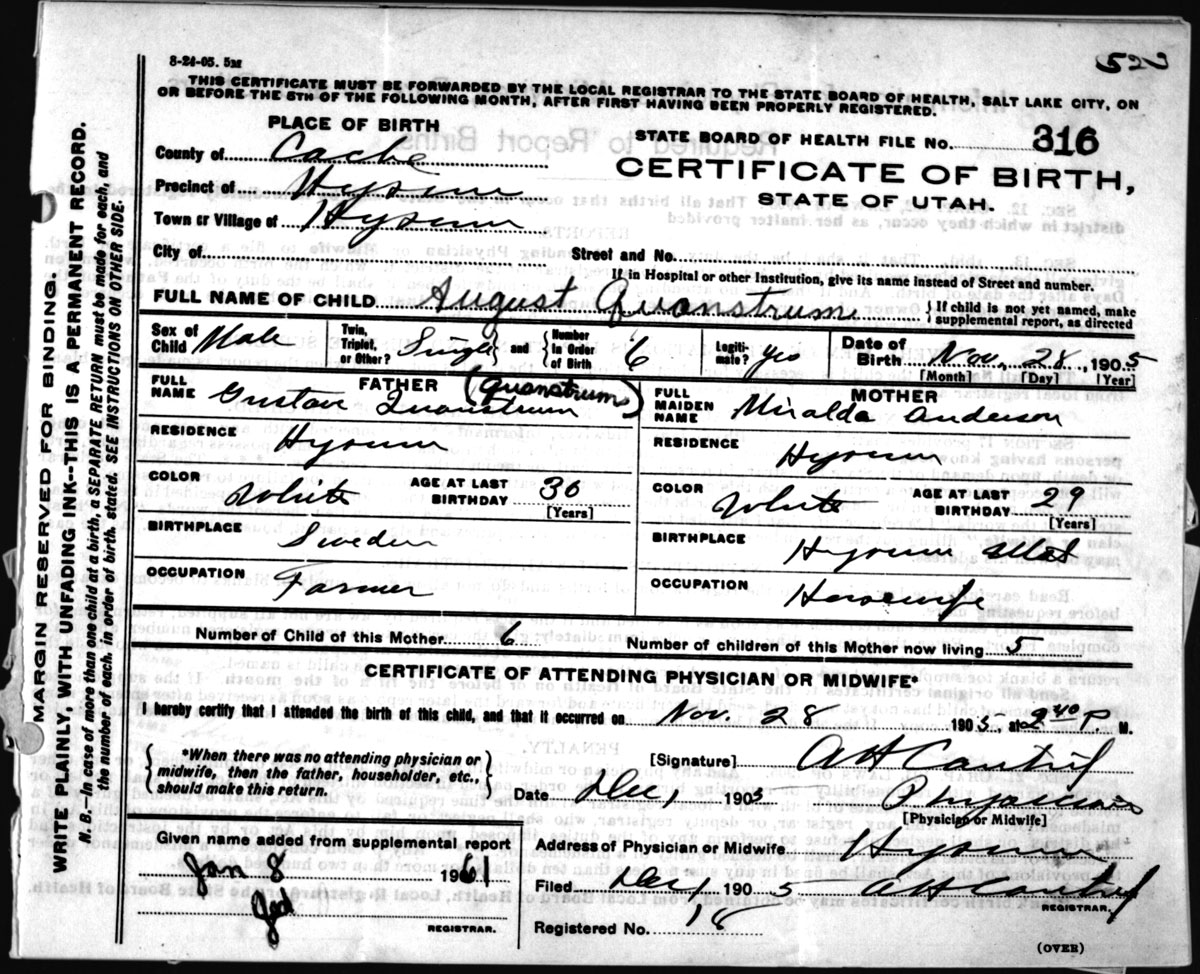 8-24-05. 5M
522
THIS CERTIFICATE MUST BE FORWARDED BY THE LOCAL REGISTRAR TO THE STATE BOARD OF HEALTH, SALT LAKE CITY, ON
OR BEFORE THE 5TH OF THE FOLLOWING MONTH, AFTER FIRST HAVING BEEN PROPERLY REGISTERED.
PLACE OF BIRTH
STATE BOARD OF HEALTH FILE NO. 316
County of Cache
CERTIFICATE OF BIRTH,
Precinct of Hyrum
STATE OF UTAH.
Town or Village of Hyrum
City of Street and No.
If in Hospital or other Institution, give its name instead of Street and number.
FULL NAME OF CHILD August Quanstrum { If child is not yet named, make
supplemental report, as directed
Sex of Child Male Twin, Triplet, or Other? Single and Number in Order of Birth 6 Legitimate? Yes Date of Birth Nov. 28, 1905
[Month] [Day] [Year]
FATHER (Quanstrum) MOTHER
FULL NAME Gustav Quanstrum FULL MAIDEN NAME Miralda Anderson
RESIDENCE Hyrum RESIDENCE Hyrum
COLOR White AGE AT LAST BIRTHDAY 36 [Years] COLOR White AGE AT LAST BIRTHDAY 29 [Years]
BIRTHPLACE Sweden BIRTHPLACE Hyrum Utah
OCCUPATION Farmer OCCUPATION Housewife
Number of Child of this Mother 6 Number of children of this Mother now living 5
CERTIFICATE OF ATTENDING PHYSICIAN OR MIDWIFE*
I hereby certify that I attended the birth of this child, and that it occurred on Nov. 28 1905, at 2 40 P. M.
*When there was no attending physician or
midwife, then the father, householder, etc.,
should make this return.
[Signature] A H Cantril
Date Dec 1 1905 Physician
[Physician or Midwife]
Given name added from supplemental report
Jan 8 1961
Jed
REGISTRAR.
Address of Physician or Midwife Hyrum
Filed Dec 1 1905 A H Cantril
REGISTRAR.
Registered No. 18
(OVER)
MARGIN RESERVED FOR BINDING.
WRITE PLAINLY, WITH UNFADING INK--THIS IS A PERMANENT RECORD.
N. B.—In case of more than one child at a birth, a SEPARATE RETURN must be made for each, and
the number of each, in order of birth, stated. SEE INSTRUCTIONS ON OTHER SIDE.